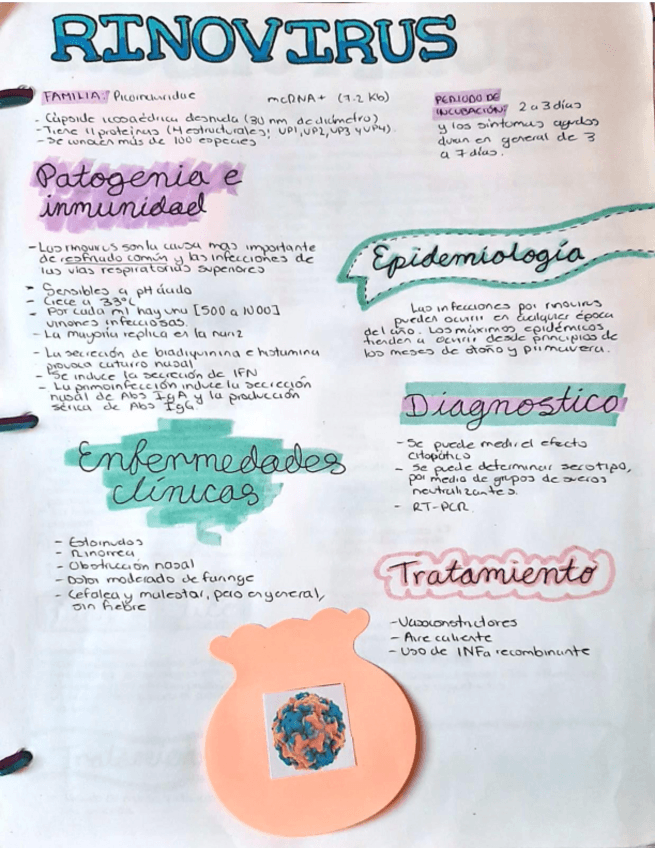 RINOVIRUS
FAMILIA: Picornaviridae
mcDNA+ (7.2 Kb)
- Cápside icosaédrica desnuda (30 nm de diámetro)
- Tiene 11 proteinas (4 estructurales; VP1, VP2, VP3 y VP4).
- Se conocen más de 100 especies
PERIODO DE
INCUBACIÓN: 2 a 3 días
y los síntomas agudos
duran en general de 3
a 7 días.
Patogenia e
inmunidad
- Los rinovirus son la causa mas importante
de resfriado común y las infecciones de
las vías respiratorias superiores
- Sensibles a pH ácido
- Crece a 33°C
- Por cada ml hay una [500 a 1000]
viriones infecciosas.
- La mayoría replica en la nariz
- La secreción de bradiquinina e histamina
provoca catarro nasal
- Se induce la secreción de IFN
- La primoinfección induce la secreción
nasal de Abs IgA y la producción
sérica de Abs IgG.
Epidemiología
Las infecciones por rinovirus
pueden ocurrir en cualquier época
del año. Los máximos epidémicos
tienden a ocurrir desde principios de
los meses de otoño y primavera.
Diagnostico
- Se puede medir el efecto
citopático
- Se puede determinar serotipo,
por medio de grupos de sueros
neutralizantes.
- RT-PCR
Enfermedades
clínicas
- Estornudos
- Rinorrea
- Obstrucción nasal
- Dolor moderado de faringe
- Cefalea y malestar, pero en general,
sin fiebre
Tratamiento
- Vasoconstrictores
- Aire caliente
- Uso de INFa recombinante